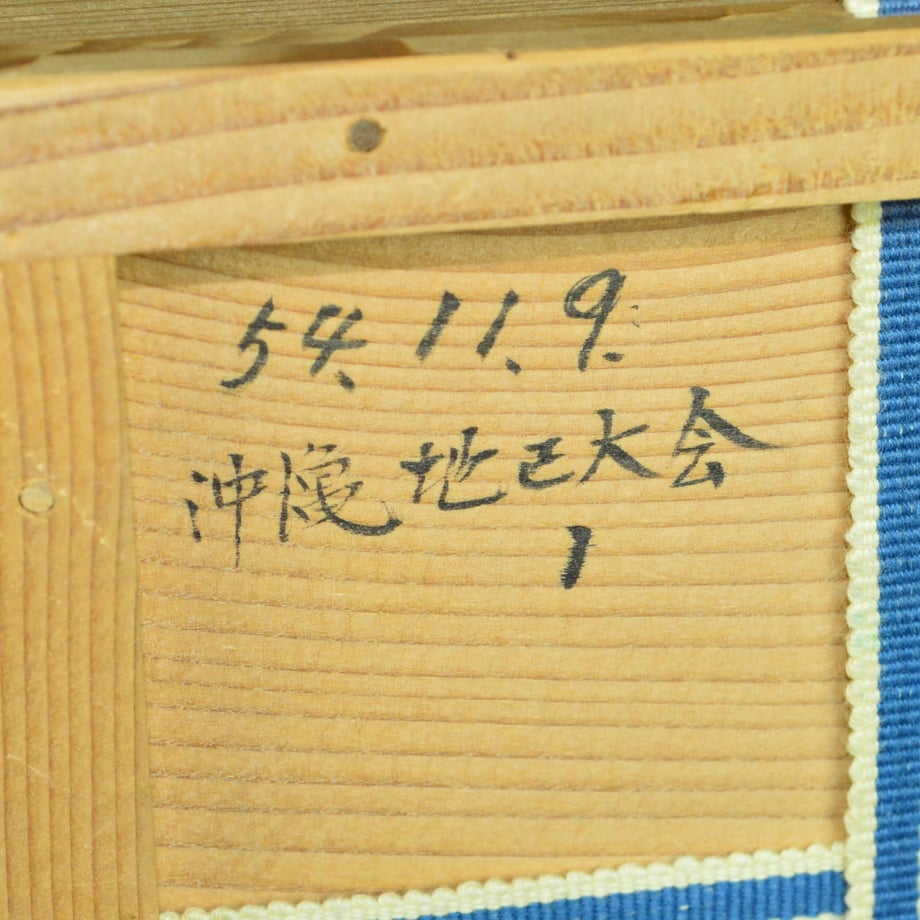 54. 11. 9.
沖縄地区大会
1